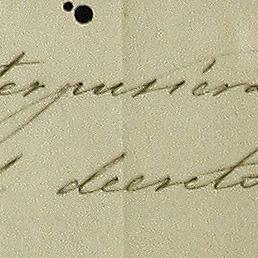 terpusiéra
l decreto